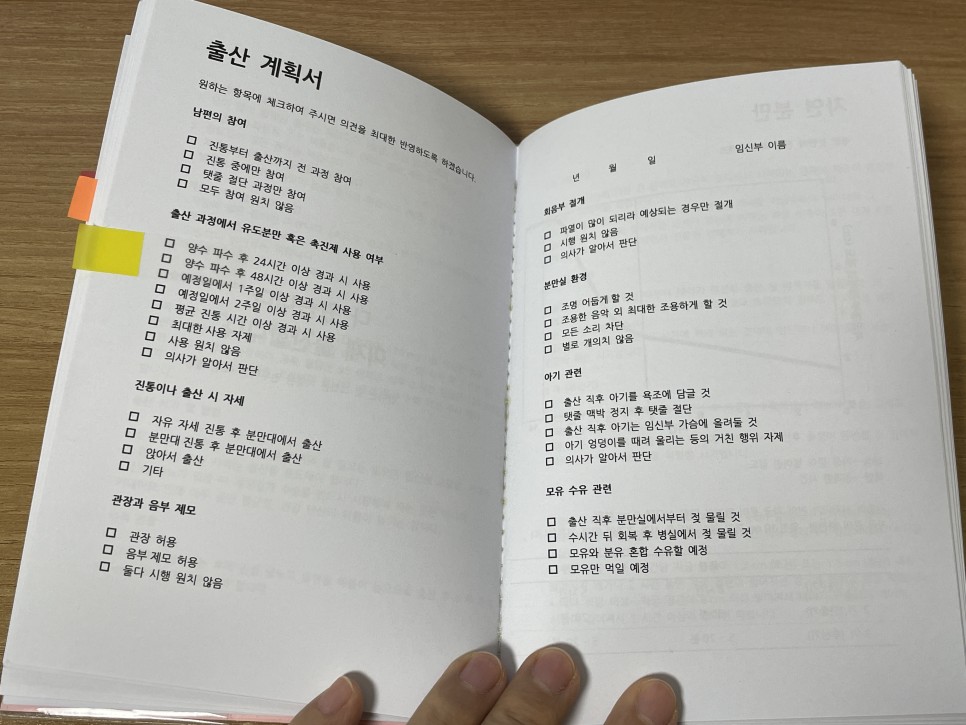 출산 계획서
원하는 항목에 체크하여 주시면 의견을 최대한 반영하도록 하겠습니다.
남편의 참여
□ 진통부터 출산까지 전 과정 참여
□ 진통 중에만 참여
□ 탯줄 절단 과정만 참여
□ 모두 참여 원치 않음
출산 과정에서 유도분만 혹은 촉진제 사용 여부
□ 양수 파수 후 24시간 이상 경과 시 사용
□ 양수 파수 후 48시간 이상 경과 시 사용
□ 예정일에서 1주일 이상 경과 시 사용
□ 예정일에서 2주일 이상 경과 시 사용
□ 평균 진통 시간 이상 경과 시 사용
□ 최대한 사용 자제
□ 사용 원치 않음
□ 의사가 알아서 판단
진통이나 출산 시 자세
□ 자유 자세 진통 후 분만대에서 출산
□ 분만대 진통 후 분만대에서 출산
□ 앉아서 출산
□ 기타
관장과 음부 제모
□ 관장 허용
□ 음부 제모 허용
□ 둘다 시행 원치 않음
년 월 일 임신부 이름
회음부 절개
□ 파열이 많이 되리라 예상되는 경우만 절개
□ 시행 원치 않음
□ 의사가 알아서 판단
분만실 환경
□ 조명 어둡게 할 것
□ 조용한 음악 외 최대한 조용하게 할 것
□ 모든 소리 차단
□ 별로 개의치 않음
아기 관련
□ 출산 직후 아기를 욕조에 담글 것
□ 탯줄 맥박 정지 후 탯줄 절단
□ 출산 직후 아기는 임신부 가슴에 올려둘 것
□ 아기 엉덩이를 때려 울리는 등의 거친 행위 자제
□ 의사가 알아서 판단
모유 수유 관련
□ 출산 직후 분만실에서부터 젖 물릴 것
□ 수시간 뒤 회복 후 병실에서 젖 물릴 것
□ 모유와 분유 혼합 수유할 예정
□ 모유만 먹일 예정